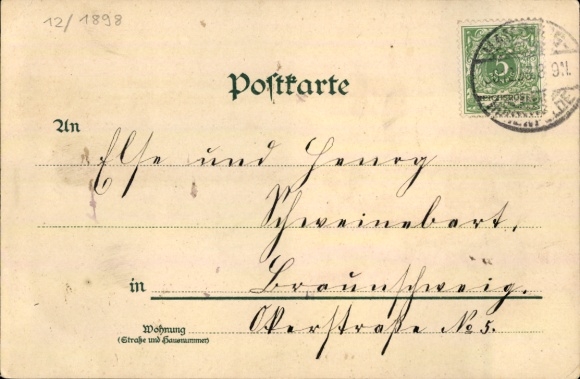 12/1898
Postkarte
An
Else und Henog
Schweinebart,
in Braunschweig.
Wohnung
(Straße und Hausnummer)
Okerstraße No 5.